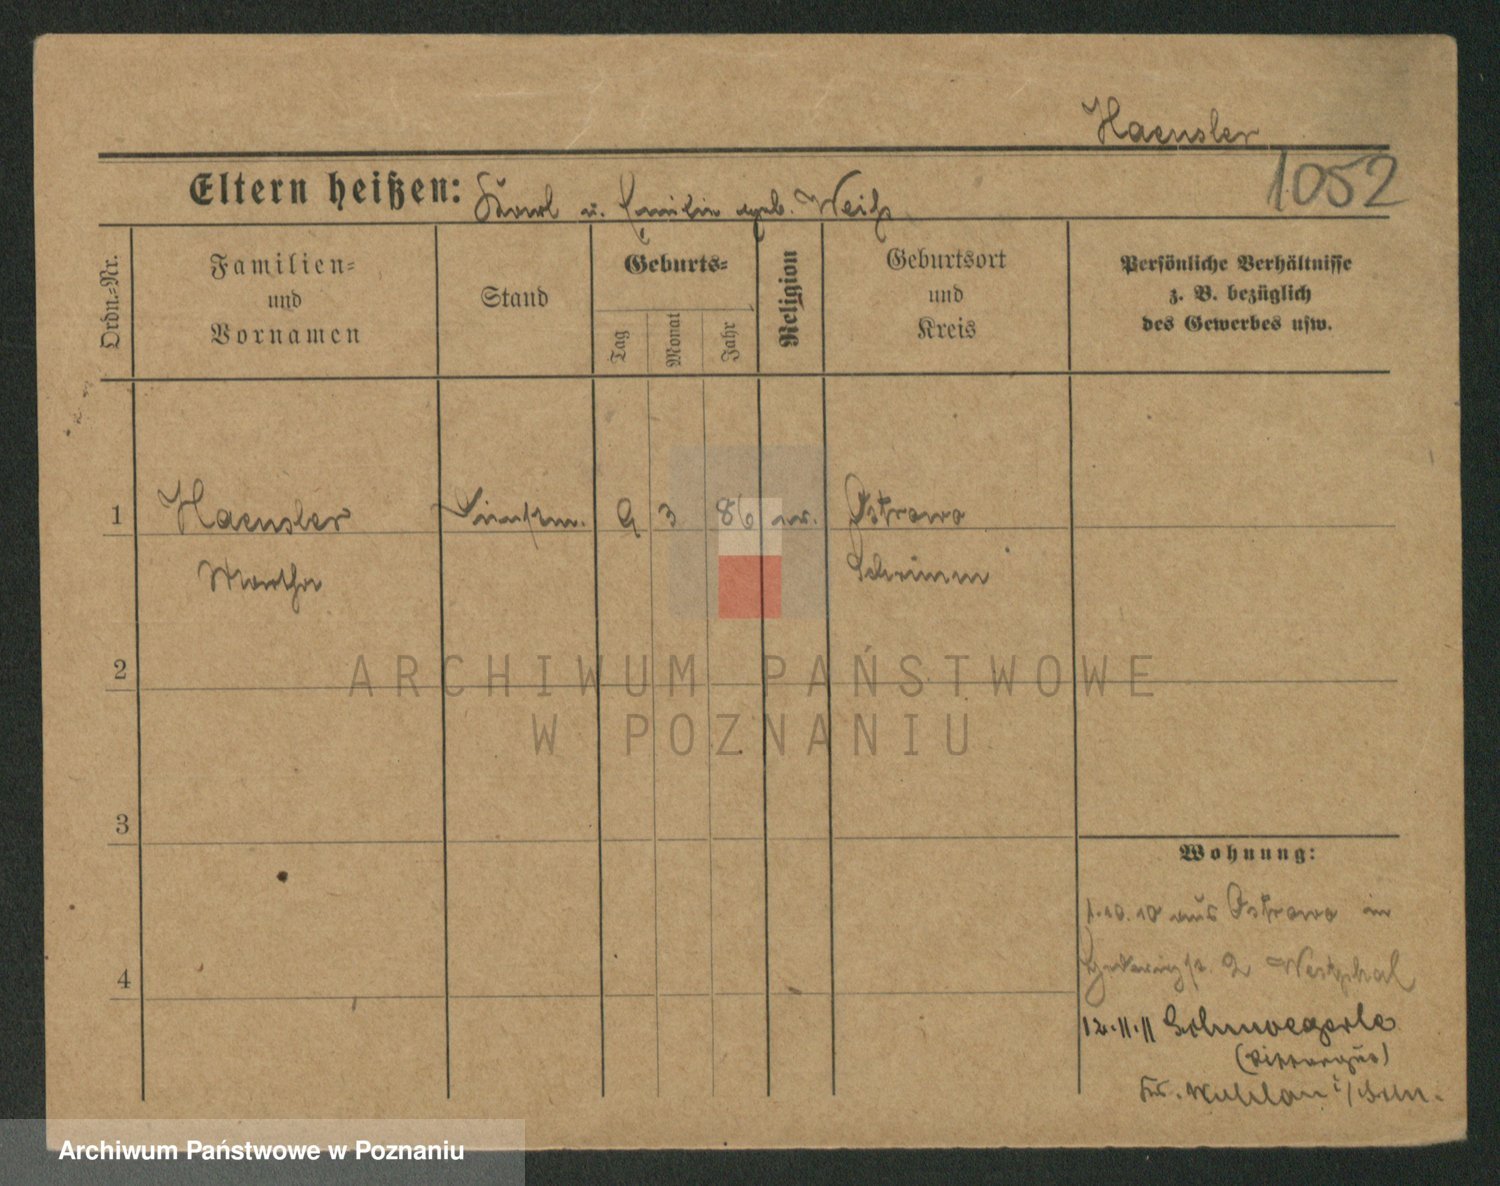 Haensler
1052
Eltern heißen: Karl u. Emilie geb. Weiß
Ordn.-Nr.
Familien-
und
Vornamen
Stand
Geburts-
Tag
Monat
Jahr
Religion
Geburtsort
und
Kreis
Persönliche Verhältnisse
z. B. bezüglich
des Gewerbes usw.
1 Haensler 9 3 86 ev. Ostrowo
Martha Schrimm
2
ARCHIWUM PAŃSTWOWE
W POZNANIU
3
4
Wohnung:
1.10.10 aus Ostrowo in
2 Westphal
12.11.11
(Rittergut)
Kr. Wohlau i/Schl.
Archiwum Państwowe w Poznaniu